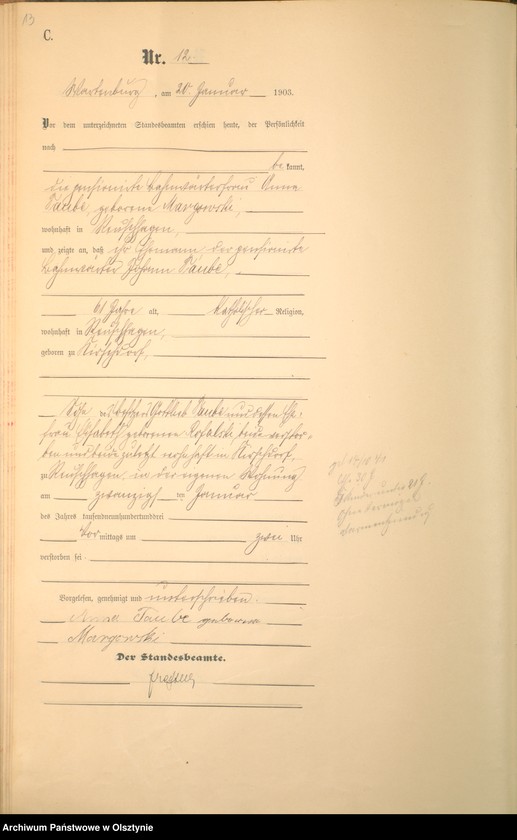 13
C.
Nr. 12
Wartenburg, am 20. Januar 1903.
Vor dem unterzeichneten Standesbeamten erschien heute, der Persönlichkeit
nach
be kannt,
die pensionirte Bahnwärterfrau Anna
Taube, geborene Margowski,
wohnhaft in Neuschhagen,
und zeigte an, daß ihr Ehemann, der pensionirte
Bahnwärter Johann Taube,
61 Jahre alt, katholischer Religion,
wohnhaft in Neuschhagen,
geboren zu Kirschdorf,
Sohn des Besitzers Gottlieb Taube und dessen Ehe-
frau Elisabeth geborenen beide verstor-
ben und beide zuletzt wohnhaft in Kirschdorf,
zu Neuschhagen, in der eigenen Wohnung
am zwanzigsten Januar
des Jahres tausendneunhundertunddrei
Vor mittags um zwei Uhr
verstorben sei.
Vorgelesen, genehmigt und unterschrieben.
Anna Taube geborene
Margowski
Der Standesbeamte.
Archiwum Państwowe w Olsztynie